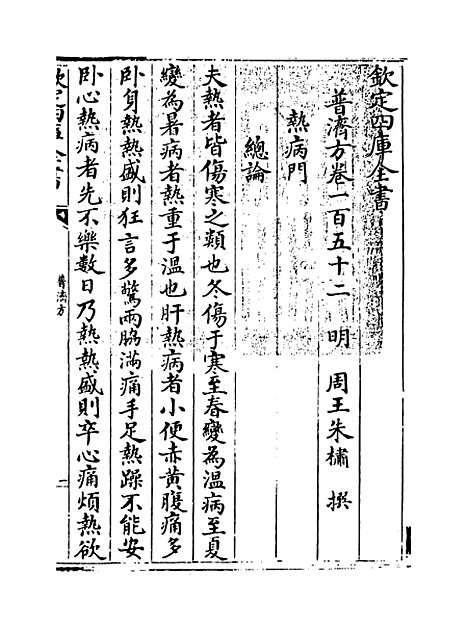 欽定四庫全書
普濟方卷一百五十二　明　周王朱橚　撰
熱病門
總論
夫熱者皆傷寒之類也冬傷于寒至春變為溫病至夏
變為暑病者熱重于溫也肝熱病者小便赤黃腹痛多
卧身熱熱盛則狂言多驚兩脇滿痛手足熱躁不能安
卧心熱病者先不樂數日乃熱熱盛則卒心痛煩熱欲
欽定四庫全書
普濟方